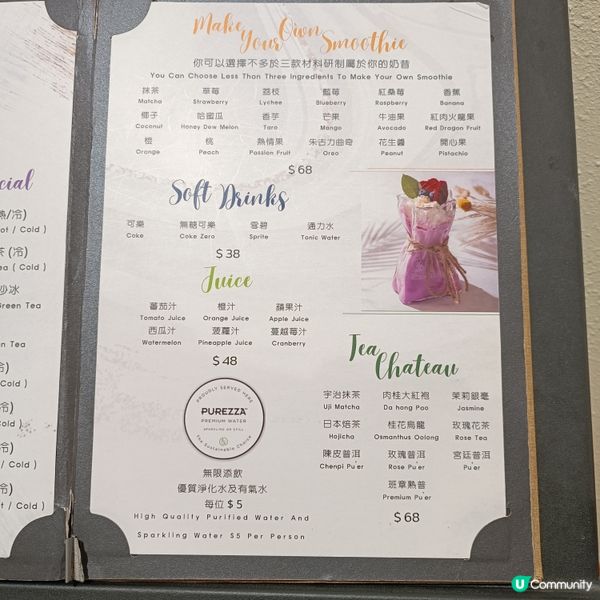 Make Your Own Smoothie
你可以選擇不多於三款材料研制屬於你的奶昔
You Can Choose Less Than Three Ingredients To Make Your Own Smoothie
抹茶 草莓 荔枝 藍莓 紅桑莓 香蕉
Matcha Strawberry Lychee Blueberry Raspberry Banana
椰子 哈蜜瓜 香芋 芒果 牛油果 紅肉火龍果
Coconut Honey Dew Melon Taro Mango Avocado Red Dragon Fruit
橙 桃 熱情果 朱古力曲奇 花生醬 開心果
Orange Peach Passion Fruit Oreo Peanut Pistachio
$68
Soft Drinks
可樂 無糖可樂 雪碧 通力水
Coke Coke Zero Sprite Tonic Water
$38
Juice
蕃茄汁 橙汁 蘋果汁
Tomato Juice Orange Juice Apple Juice
西瓜汁 菠蘿汁 蔓越莓汁
Watermelon Pineapple Juice Cranberry
$48
PROUDLY SERVED HERE
PUREZZA
PREMIUM WATER
SPARKLING OR STILL
The Sustainable Choice
無限添飲
優質淨化水及有氣水
每位 $5
High Quality Purified Water And
Sparkling Water $5 Per Person
Tea Chateau
宇治抹茶 肉桂大紅袍 茉莉銀毫
Uji Matcha Da hong Pao Jasmine
日本焙茶 桂花烏龍 玫瑰花茶
Hojicha Osmanthus Oolong Rose Tea
陳皮普洱 玫瑰普洱 宮廷普洱
Chenpi Pu'er Rose Pu'er Pu'er
班章熟普
Premium Pu'er
$68
cial
熱/冷)
ot / Cold )
茶 (冷)
ea ( Cold )
沙冰
Green Tea
n Tea
冷)
Cold )
冷)
Cold )
冷)
Cold )
冷)
t / Cold )
U Community